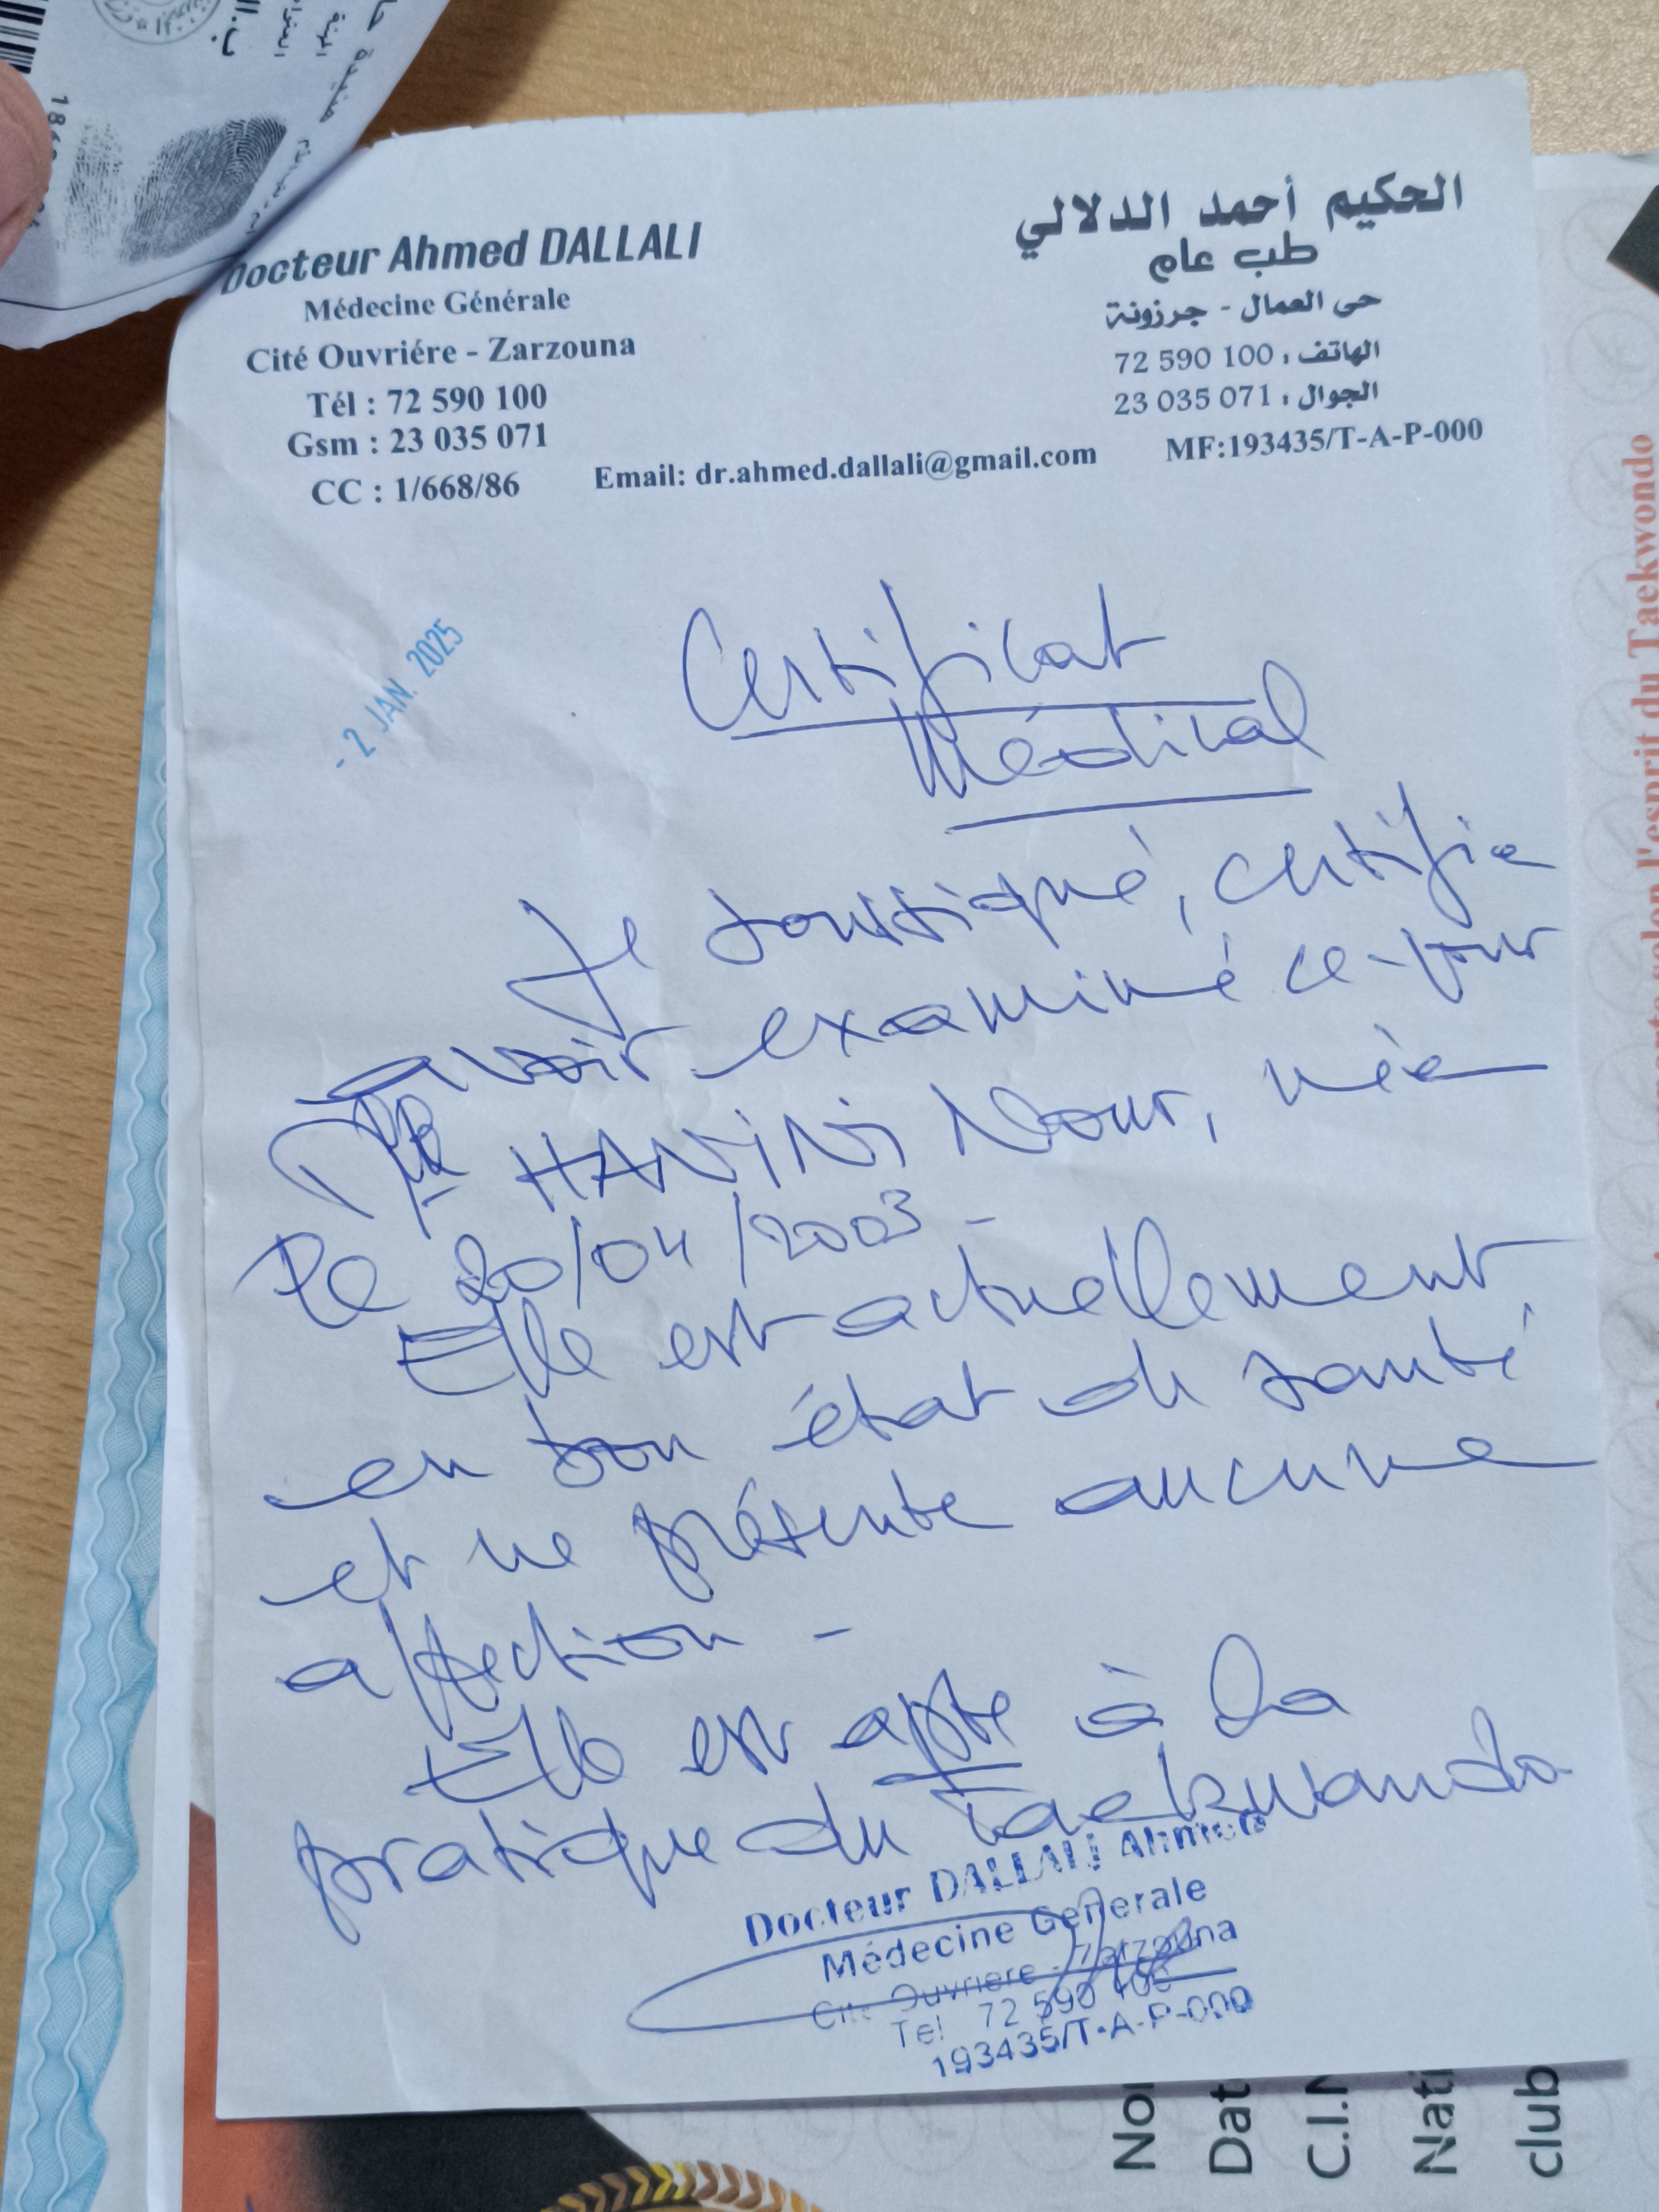 Docteur Ahmed DALLALI
Médecine Générale
Cité Ouvriére - Zarzouna
Tél : 72 590 100
Gsm : 23 035 071
CC : 1/668/86
الحكيم أحمد الدلالي
طب عام
حي العمال - جرزونة
الهاتف : 72 590 100
الجوال : 23 035 071
Email: dr.ahmed.dallali@gmail.com
MF:193435/T-A-P-000
- 2 JAN. 2025
Certificat
Médical
Je soussigné, certifie
avoir examiné ce-jour
HANINI Nour, née
le 20/04/2003 -
Elle est actuellement
en bon état de santé
et ne présente aucune
affection -
Elle est apte à la
pratique du Taekwando
Docteur DALLALI Ahmed
Médecine Generale
Cite Ouvriere - Zarzouna
Tel 72 590 100
193435/T-A-P-000
selon l'esprit du Taekwondo
No
Dat
C.I.N
Nati
club